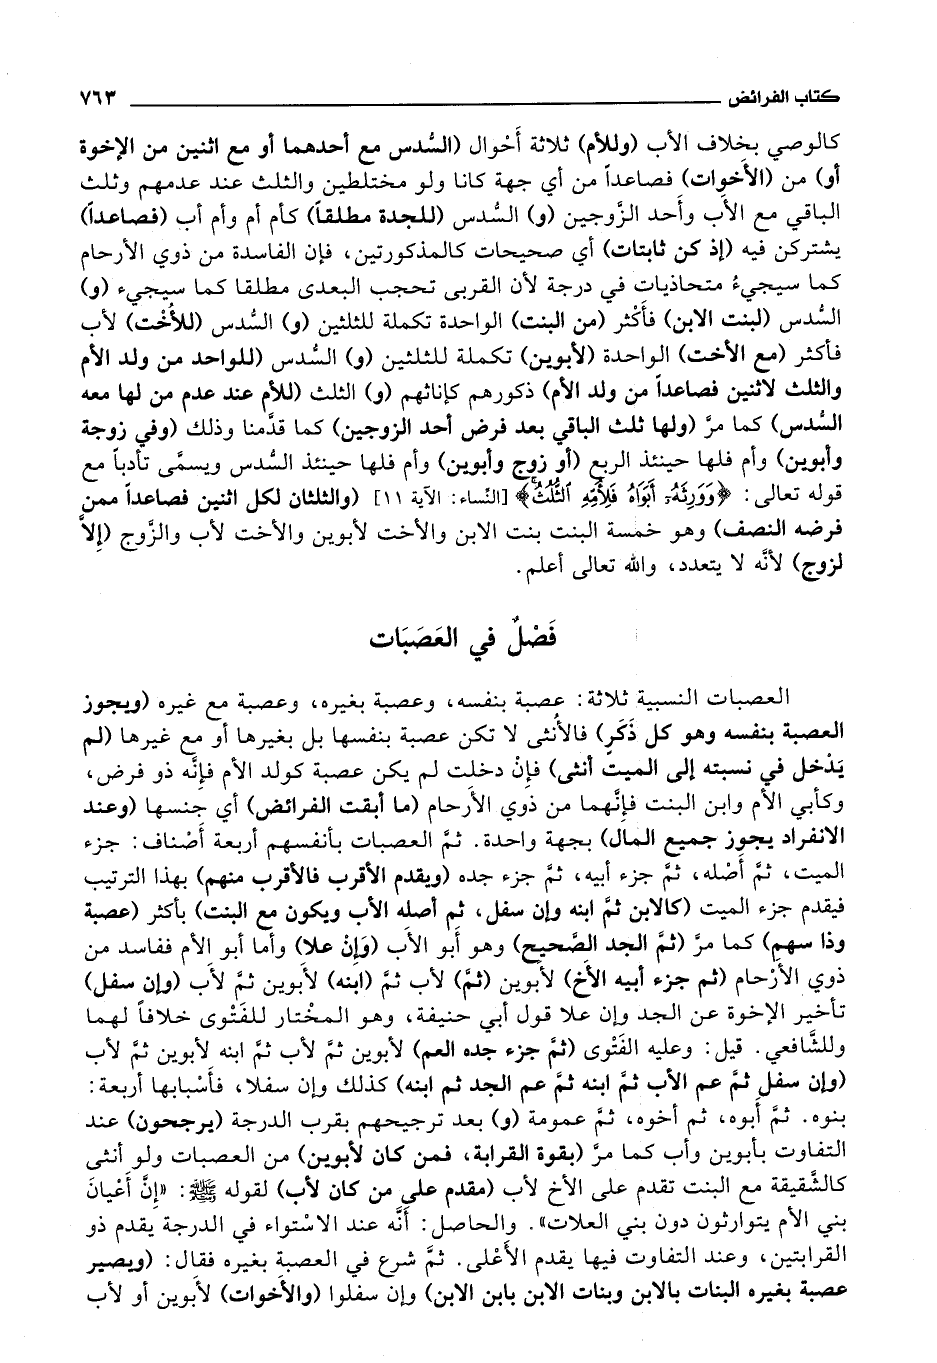 كتاب الفرائض ٧٦٣
كالوصي بخلاف الأب (وللأم) ثلاثة أَحْوال (السُّدس مع أحدهما أو مع اثنين من الإخوة
أو) من (الأخوات) فصاعداً من أي جهة كانا ولو مختلطين والثلث عند عدمهم وثلث
الباقي مع الأب وأحد الزَّوجين (و) السُّدس (للجدة مطلقاً) كأم أم وأم أب (فصاعداً)
يشتركن فيه (إذ كن ثابتات) أي صحيحات كالمذكورتين، فإن الفاسدة من ذوي الأرحام
كما سيجيءُ متحاذيات في درجة لأن القربى تحجب البعدى مطلقا كما سيجيء (و)
السُّدس (لبنت الابن) فأكْثر (من البنت) الواحدة تكملة للثلثين (و) السُّدس (للأُخت) لأب
فأكثر (مع الأخت) الواحدة (لأبوين) تكملة للثلثين (و) السُّدس (للواحد من ولد الأم
والثلث لاثنين فصاعداً من ولد الأم) ذكورهم كإناثهم (و) الثلث (للأم عند عدم من لها معه
السُّدس) كما مرَّ (ولها ثلث الباقي بعد فرض أحد الزوجين) كما قدَّمنا وذلك (وفي زوجة
وأبوين) وأم فلها حينئذ الربع (أو زوج وأبوين) وأم فلها حينئذ السُّدس ويسمَّى تأدباً مع
قوله تعالى: ﴿وَوَرِثَهُۥٓ أَبَوَاهُ فَلِأُمِّهِ ٱلثُّلُثُ﴾ [النَّساء: الآية ١١] (والثلثان لكل اثنين فصاعداً ممن
فرضه النصف) وهو خمسة البنت بنت الابن والأخت لأبوين والأخت لأب والزَّوج (إلاَّ
لزوج) لأنَّه لا يتعدد، والله تعالى أعلم.
فَصْلٌ في العَصَبَات
العصبات النسبية ثلاثة: عصبة بنفسه، وعصبة بغيره، وعصبة مع غيره (ويجوز
العصبة بنفسه وهو كل ذَكَرٍ) فالأُنثى لا تكن عصبة بنفسها بل بغيرها أو مع غيرها (لم
يَدْخل في نسبته إلى الميت أنثى) فإنْ دخلت لم يكن عصبة كولد الأم فإنَّه ذو فرض،
وكأبي الأم وابن البنت فإنَّهما من ذوي الأرحام (ما أبقت الفرائض) أي جنسها (وعند
الانفراد يجوز جميع المال) بجهة واحدة. ثمَّ العصبات بأنفسهم أربعة أَصْناف: جزء
الميت، ثمَّ أَصْله، ثمَّ جزء أبيه، ثمَّ جزء جده (ويقدم الأقرب فالأقرب منهم) بهذا الترتيب
فيقدم جزء الميت (كالابن ثمَّ ابنه وإن سفل، ثم أصله الأب ويكون مع البنت) بأكثر (عصبة
وذا سهم) كما مرَّ (ثمَّ الجد الصَّحيح) وهو أَبو الأب (وَإِنْ علا) وأما أبو الأم ففاسد من
ذوي الأرْحام (ثم جزء أبيه الأخ) لأبوين (ثمَّ) لأب ثمَّ (ابنه) لأبوين ثمَّ لأب (وإن سفل)
تأخير الإخوة عن الجد وإن علا قول أبي حنيفة، وهو المخْتار للفَتْوى خلافاً لهما
وللشَّافعي. قيل: وعليه الفَتْوى (ثمَّ جزء جده العم) لأبوين ثمَّ لأب ثمَّ ابنه لأبوين ثمَّ لأب
(وإن سفل ثمَّ عم الأب ثمَّ ابنه ثمَّ عم الجد ثم ابنه) كذلك وإن سفلا، فأَسْبابها أربعة:
بنوه. ثمَّ أبوه، ثم أخوه، ثمَّ عمومة (و) بعد ترجيحهم بقرب الدرجة (يرجحون) عند
التفاوت بأبوين وأب كما مرَّ (بقوة القرابة، فمن كان لأبوين) من العصبات ولو أنثى
كالشَّقيقة مع البنت تقدم على الأخ لأب (مقدم على من كان لأب) لقوله ﷺ: «إنَّ أَعْيانَ
بني الأم يتوارثون دون بني العلات». والحاصل: أَنَّه عند الاسْتواء في الدرجة يقدم ذو
القرابتين، وعند التفاوت فيها يقدم الأَعْلى. ثمَّ شرع في العصبة بغيره فقال: (ويصير
عصبة بغيره البنات بالابن وبنات الابن بابن الابن) وإن سفلوا (والأخوات) لأبوين أو لأب